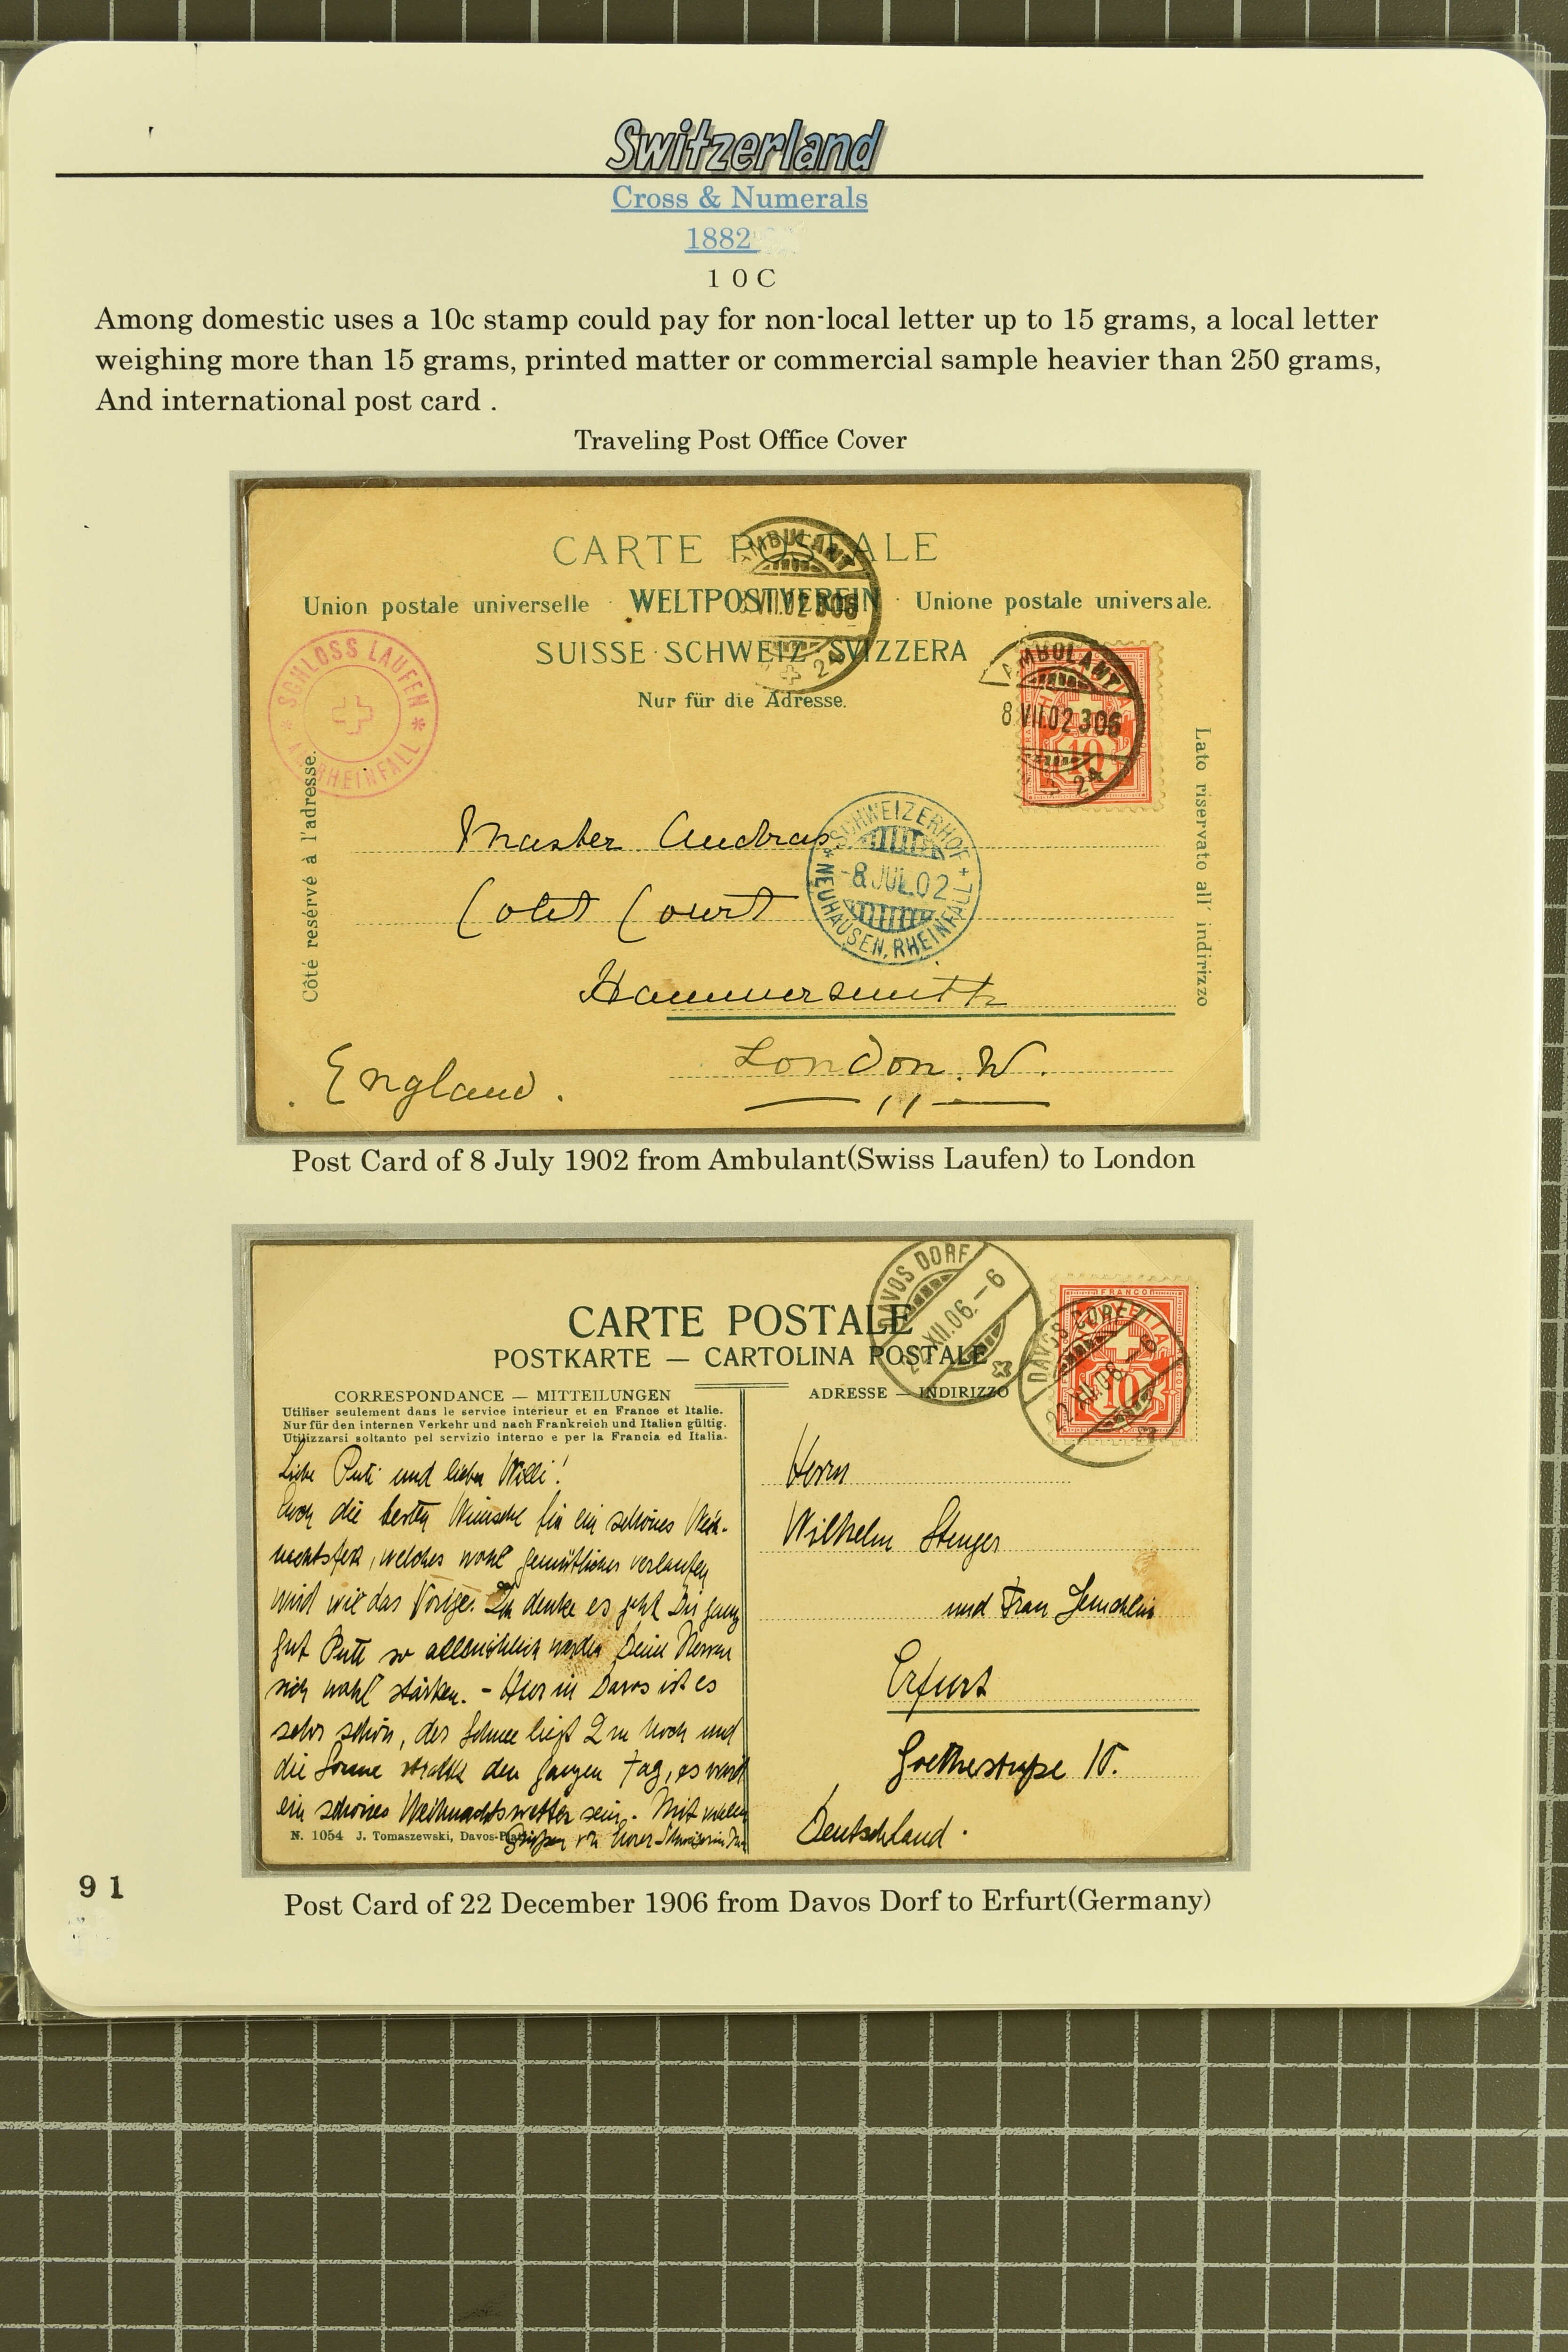 Switzerland
Cross & Numerals
1882
10C
Among domestic uses a 10c stamp could pay for non-local letter up to 15 grams, a local letter
weighing more than 15 grams, printed matter or commercial sample heavier than 250 grams,
And international post card .
Traveling Post Office Cover
CARTE POSTALE
AMBULANT
Union postale universelle · WELTPOSTVEREIN · Unione postale universale.
VII.02 306
SUISSE·SCHWEIZ·SVIZZERA
24
Nur für die Adresse.
SCHLOSS LAUFEN
* AM RHEINFALL *
AMBULANT
8 VII.02 306
24
10
Côté resérvé à l'adresse.
Lato riservato all' indirizzo
Master Andras
Colet Court
SCHWEIZERHOF
-8 JUL 02
NEUHAUSEN, RHEINFALL
Hammersmith
London. W.
England.
Post Card of 8 July 1902 from Ambulant(Swiss Laufen) to London
CARTE POSTALE
POSTKARTE — CARTOLINA POSTALE
DAVOS DORF
XII.06.-6
FRANCO
HELVETIA
10
DAVOS DORF
22.XII.06.-6
CORRESPONDANCE — MITTEILUNGEN
ADRESSE — INDIRIZZO
Utiliser seulement dans le service intérieur et en France et Italie.
Nur für den internen Verkehr und nach Frankreich und Italien gültig.
Utilizzarsi soltanto pel servizio interno e per la Francia ed Italia.
Liebe Puti und lieber Willi!
Euch die besten Wünsche für ein schönes Weih-
nachtsfest, welches wohl gemütlicher verlaufen
wird wie das Vorige. Ich denke es geht Dir ganz
gut Puti so allmählich werden Deine Nerven
sich wohl stärken. - Hier in Davos ist es
sehr schön, der Schnee liegt 2 m hoch und
die Sonne strahlt den ganzen Tag, es wird
ein schönes Weihnachtswetter sein. Mit vielen
Grüssen von Eurer
N. 1054 J. Tomaszewski, Davos-Platz
Herrn
Wilhelm Stenger
und Frau
Erfurt
Goethestrasse 10.
Deutschland.
91
Post Card of 22 December 1906 from Davos Dorf to Erfurt(Germany)